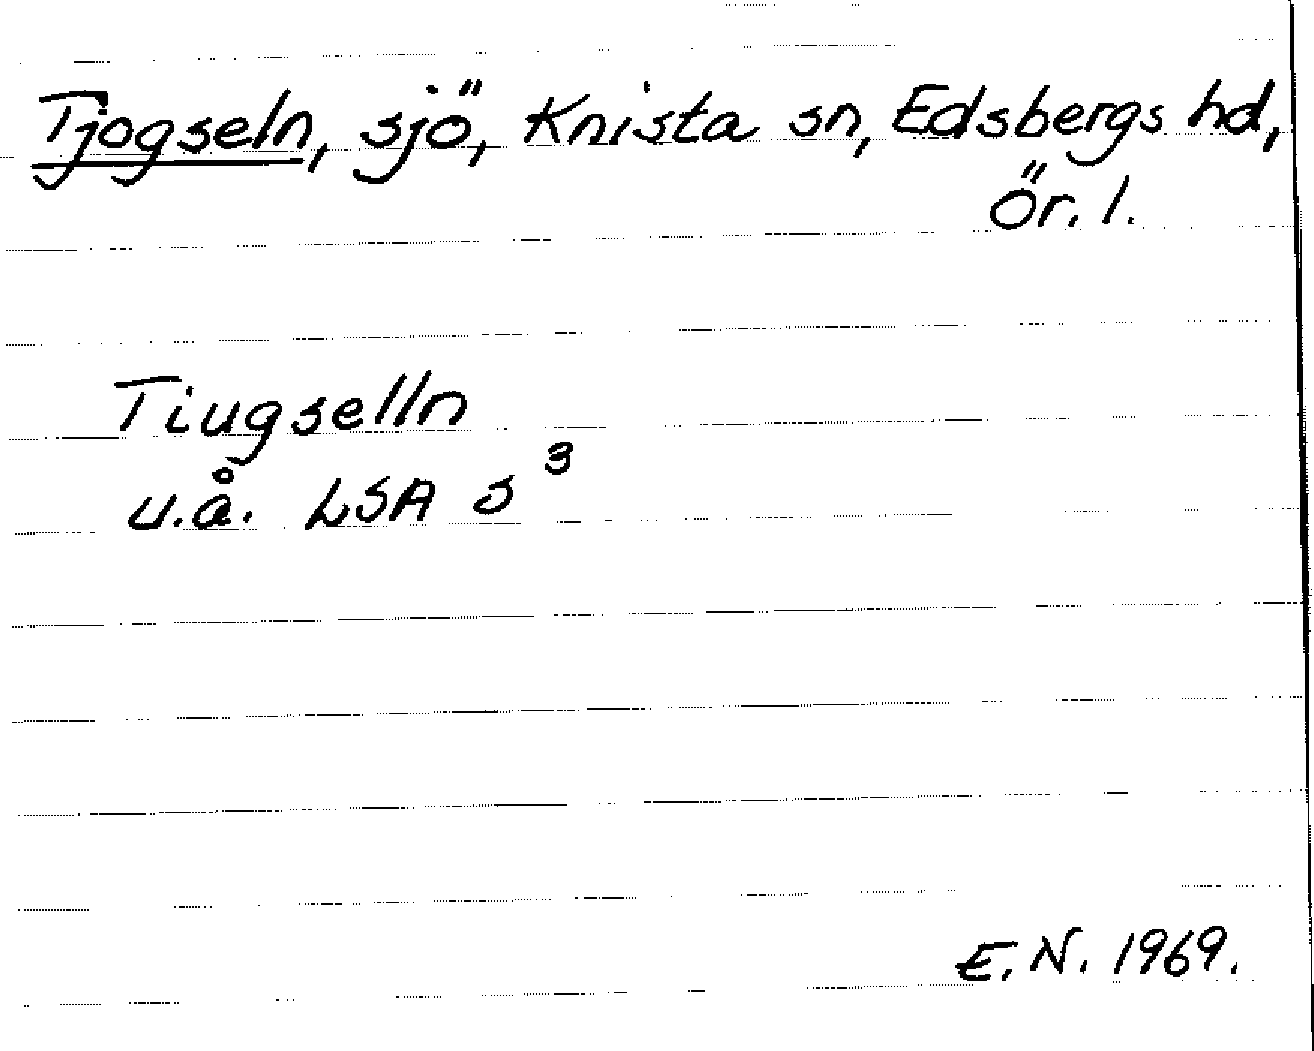 Tjogseln, sjö, Knista sn, Edsbergs hd,
Ör. l.
Tiugselln
u.å. LSA S³
E.N. 1969.